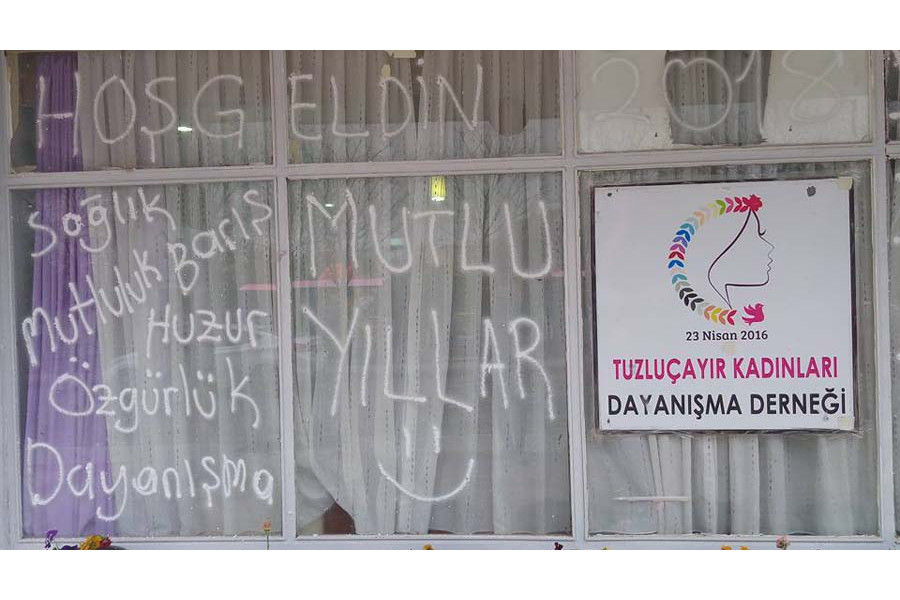 HOŞGELDİN 2018
Sağlık
Barış
Mutluluk
Huzur
Özgürlük
Dayanışma
MUTLU
YILLAR
23 Nisan 2016
TUZLUÇAYIR KADINLARI
DAYANIŞMA DERNEĞİ